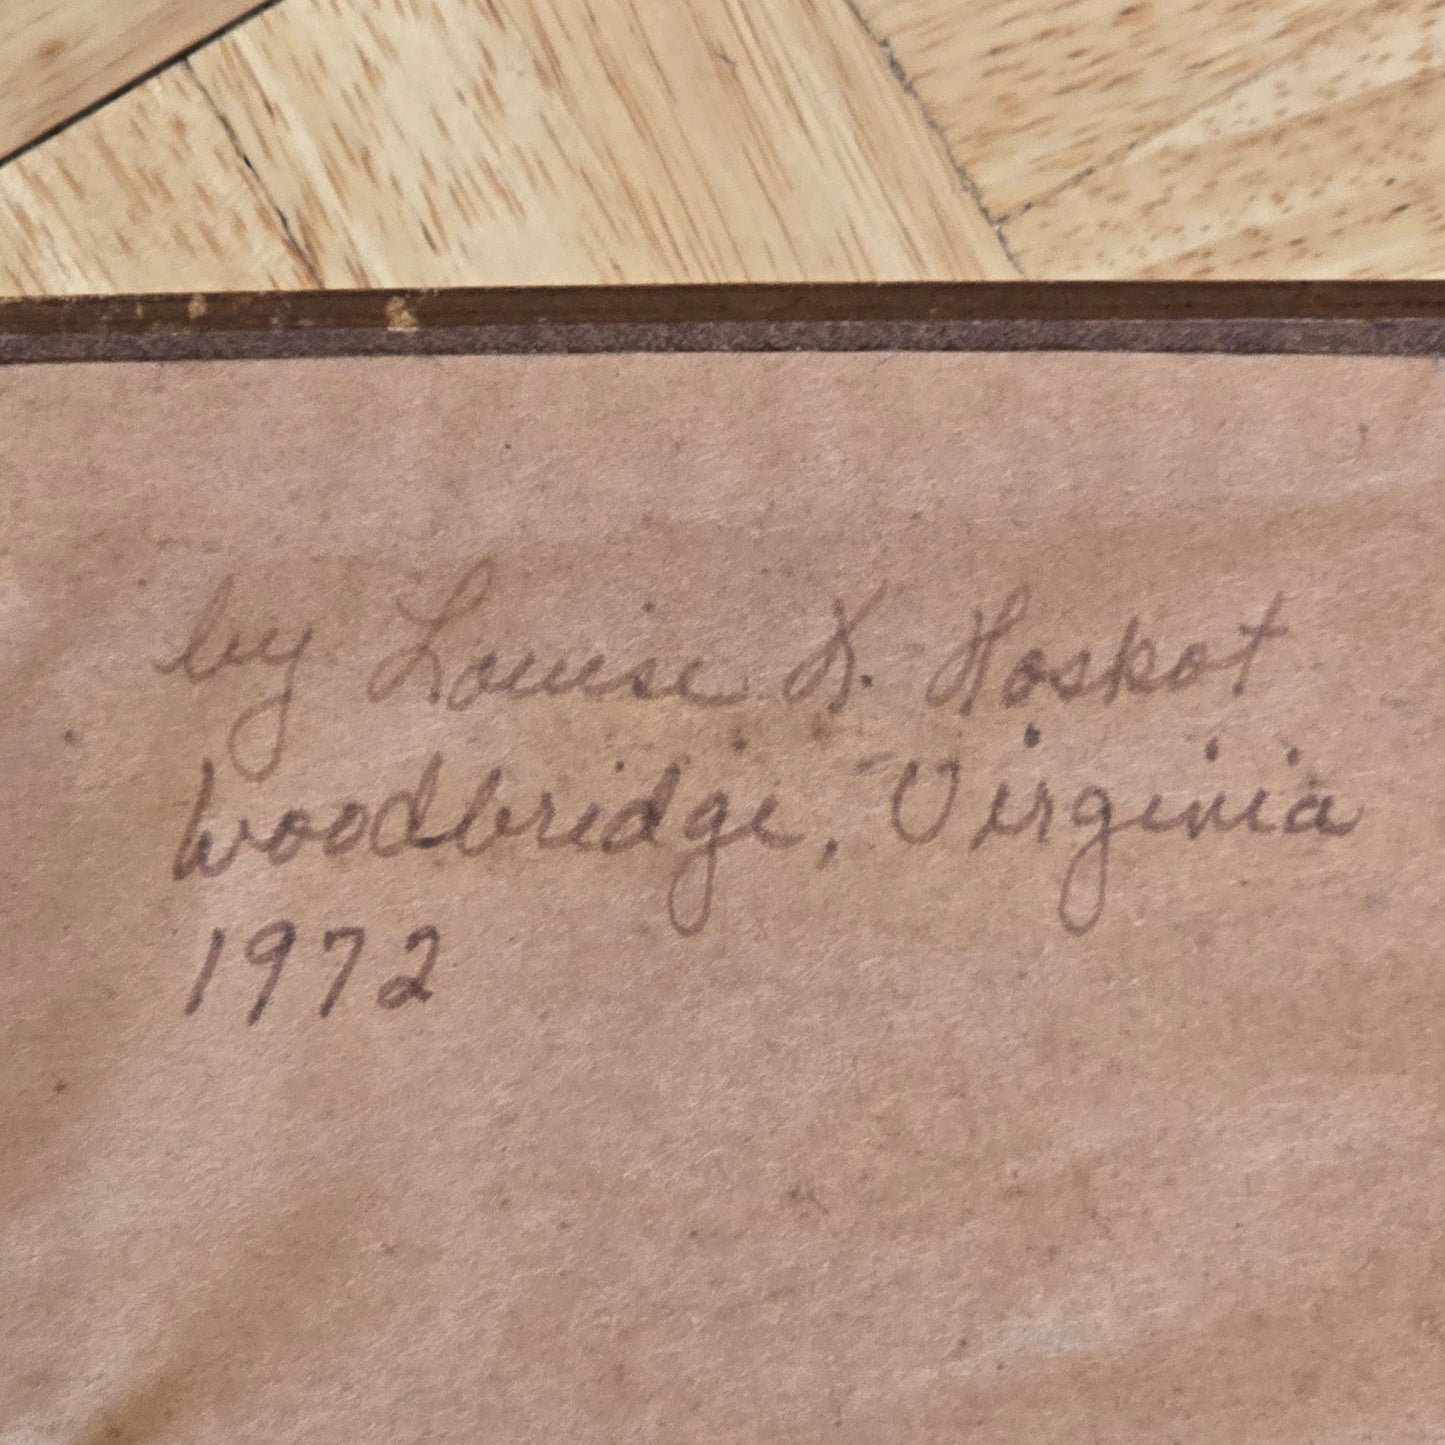 by Louise K. Hoskot
Woodbridge, Virginia
1972